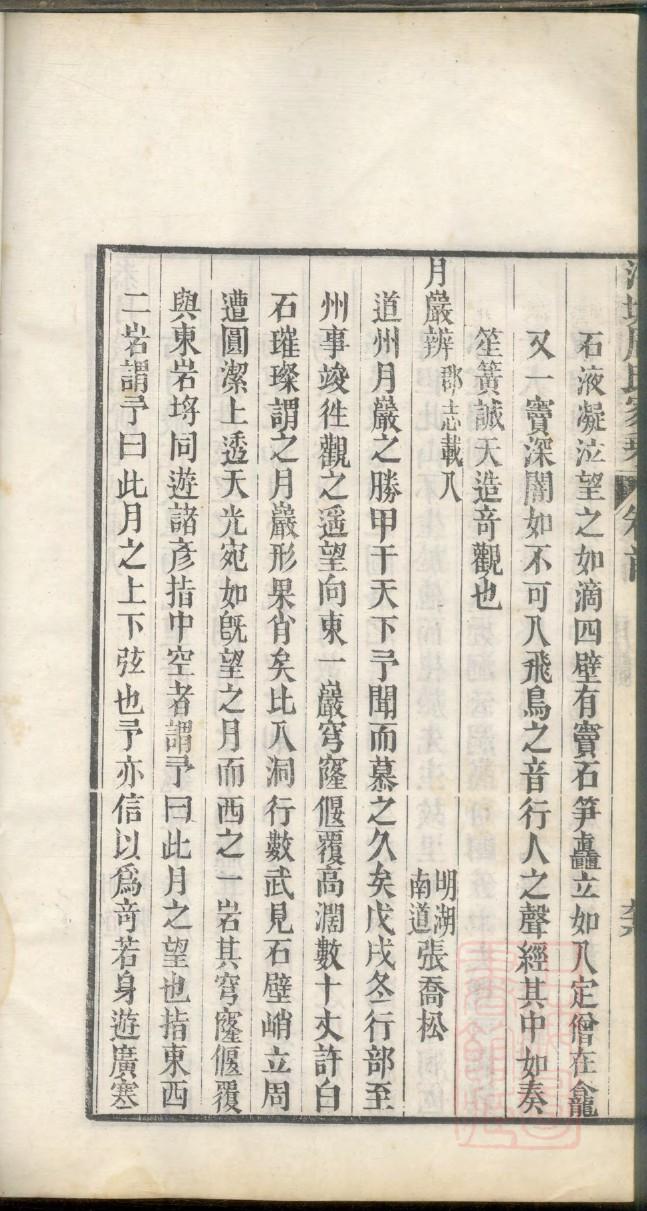 石液凝泣望之如滴四壁有竇石笋矗立如入定僧在龕
又一竇深闇如不可入飛鳥之音行人之聲經其中如奏
笙簧誠天造竒觀也
月巖辨 郡志載入
明湖南道張喬松
道州月巖之勝甲于天下予聞而慕之久矣戊戌冬行部至
州事竣徃觀之遥望向東一巖穹窿偃覆高濶數十丈許白
石璀璨謂之月巖形果肖矣比入洞行數武見石壁峭立周
遭圓潔上透天光宛如旣望之月而西之一岩其穹窿偃覆
與東岩埒同遊諸彥指中空者謂予曰此月之望也指東西
二岩謂予曰此月之上下弦也予亦信以爲竒若身遊廣寒